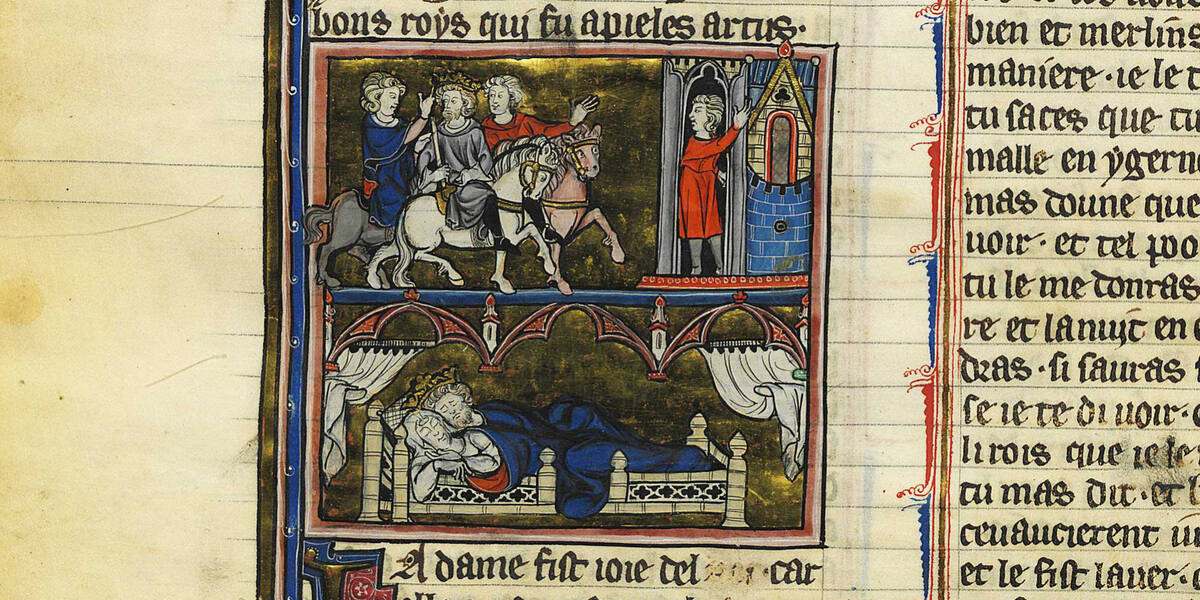 bons roys qui fu apieles artus·
A dame fist ioie del ·car
bien et merlins
maniere·ie le
tu saces que
malle en ygern
mas doune que
uoir· et tel poo
tu le me donras
re et la nuit en
dras·si sauras
se ie te di uoir·
li rois que ie le
tu mas dit·et
ceuaucierent
et le fist lauer·